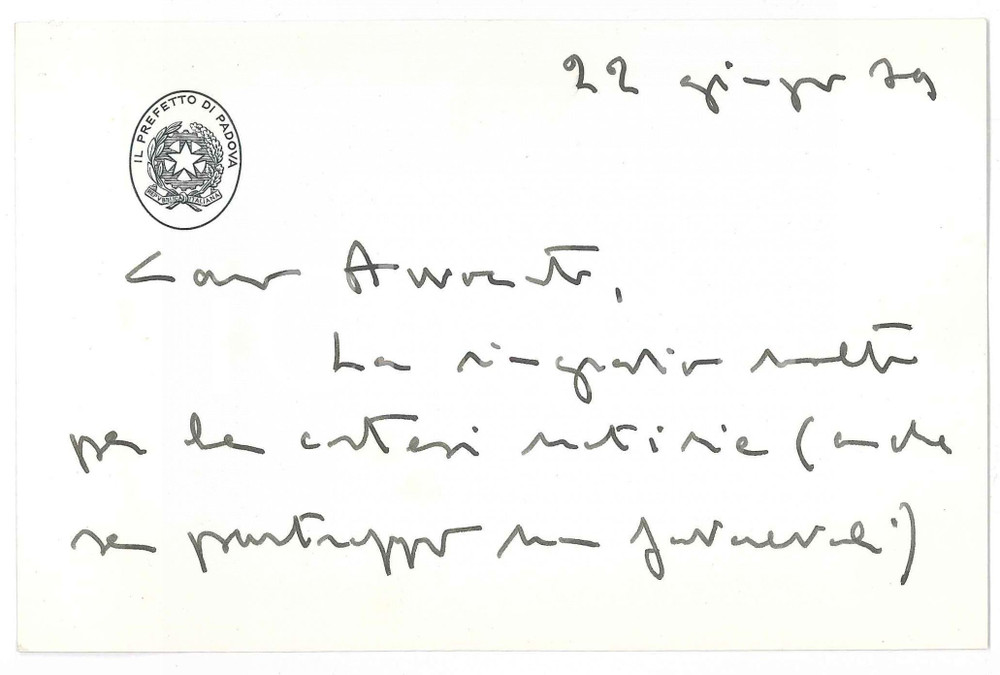 22 giugno 79
IL PREFETTO DI PADOVA
REPVBBLICA ITALIANA
Caro Avvocato,
La ringrazio molto
per le cortesi notizie (anche
se purtroppo non favorevoli)